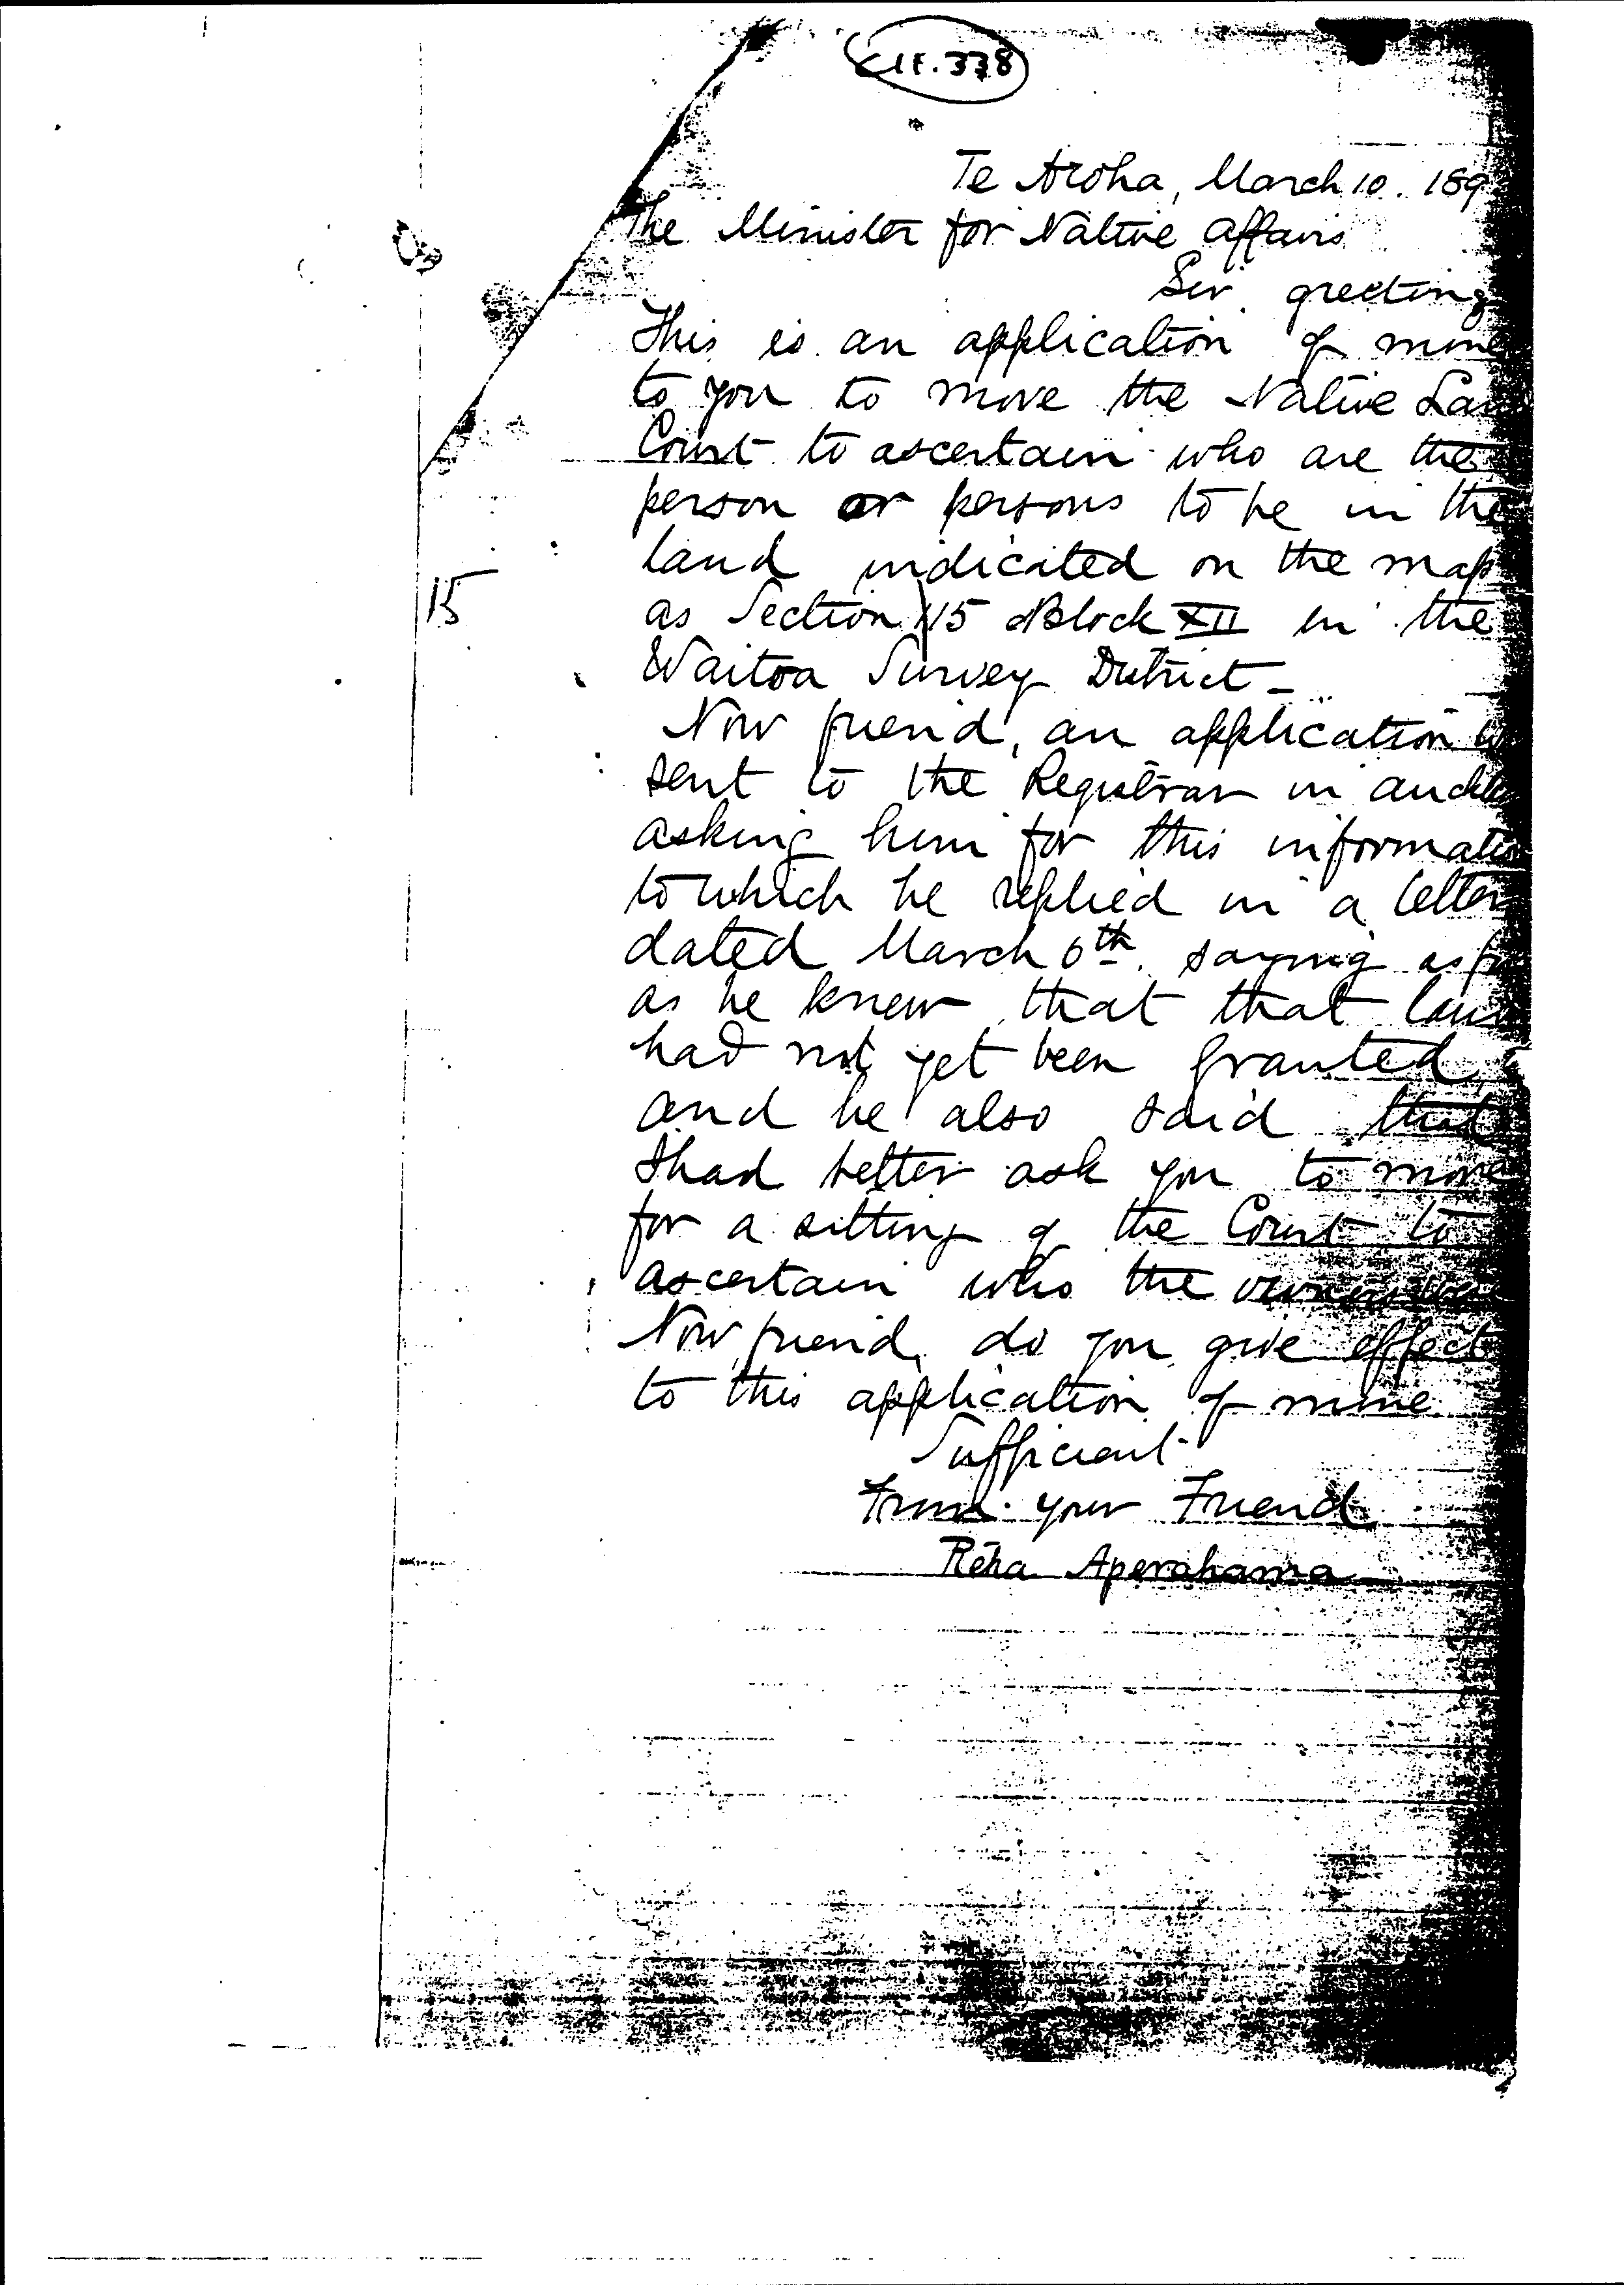 338
Te Aroha, March 10. 189
The Minister for Native Affairs
Sir, greeting
This is an application of mine
to you to move the Native Lan
Court to ascertain who are the
person or persons to be in the
land indicated on the map
as Section 115 Block XII in the
15
Waitoa Survey District -
Now friend, an application
sent to the Registrar in Auckl
asking him for this informatio
to which he replied in a letter
dated March 6th. saying as
as he knew that that lan
had not yet been granted,
and he also said that
I had better ask you to move
for a sitting of the Court to
ascertain who the owners
Now friend, do you give effect
to this application of mine
Sufficient
From your Friend
Reha Aperahama